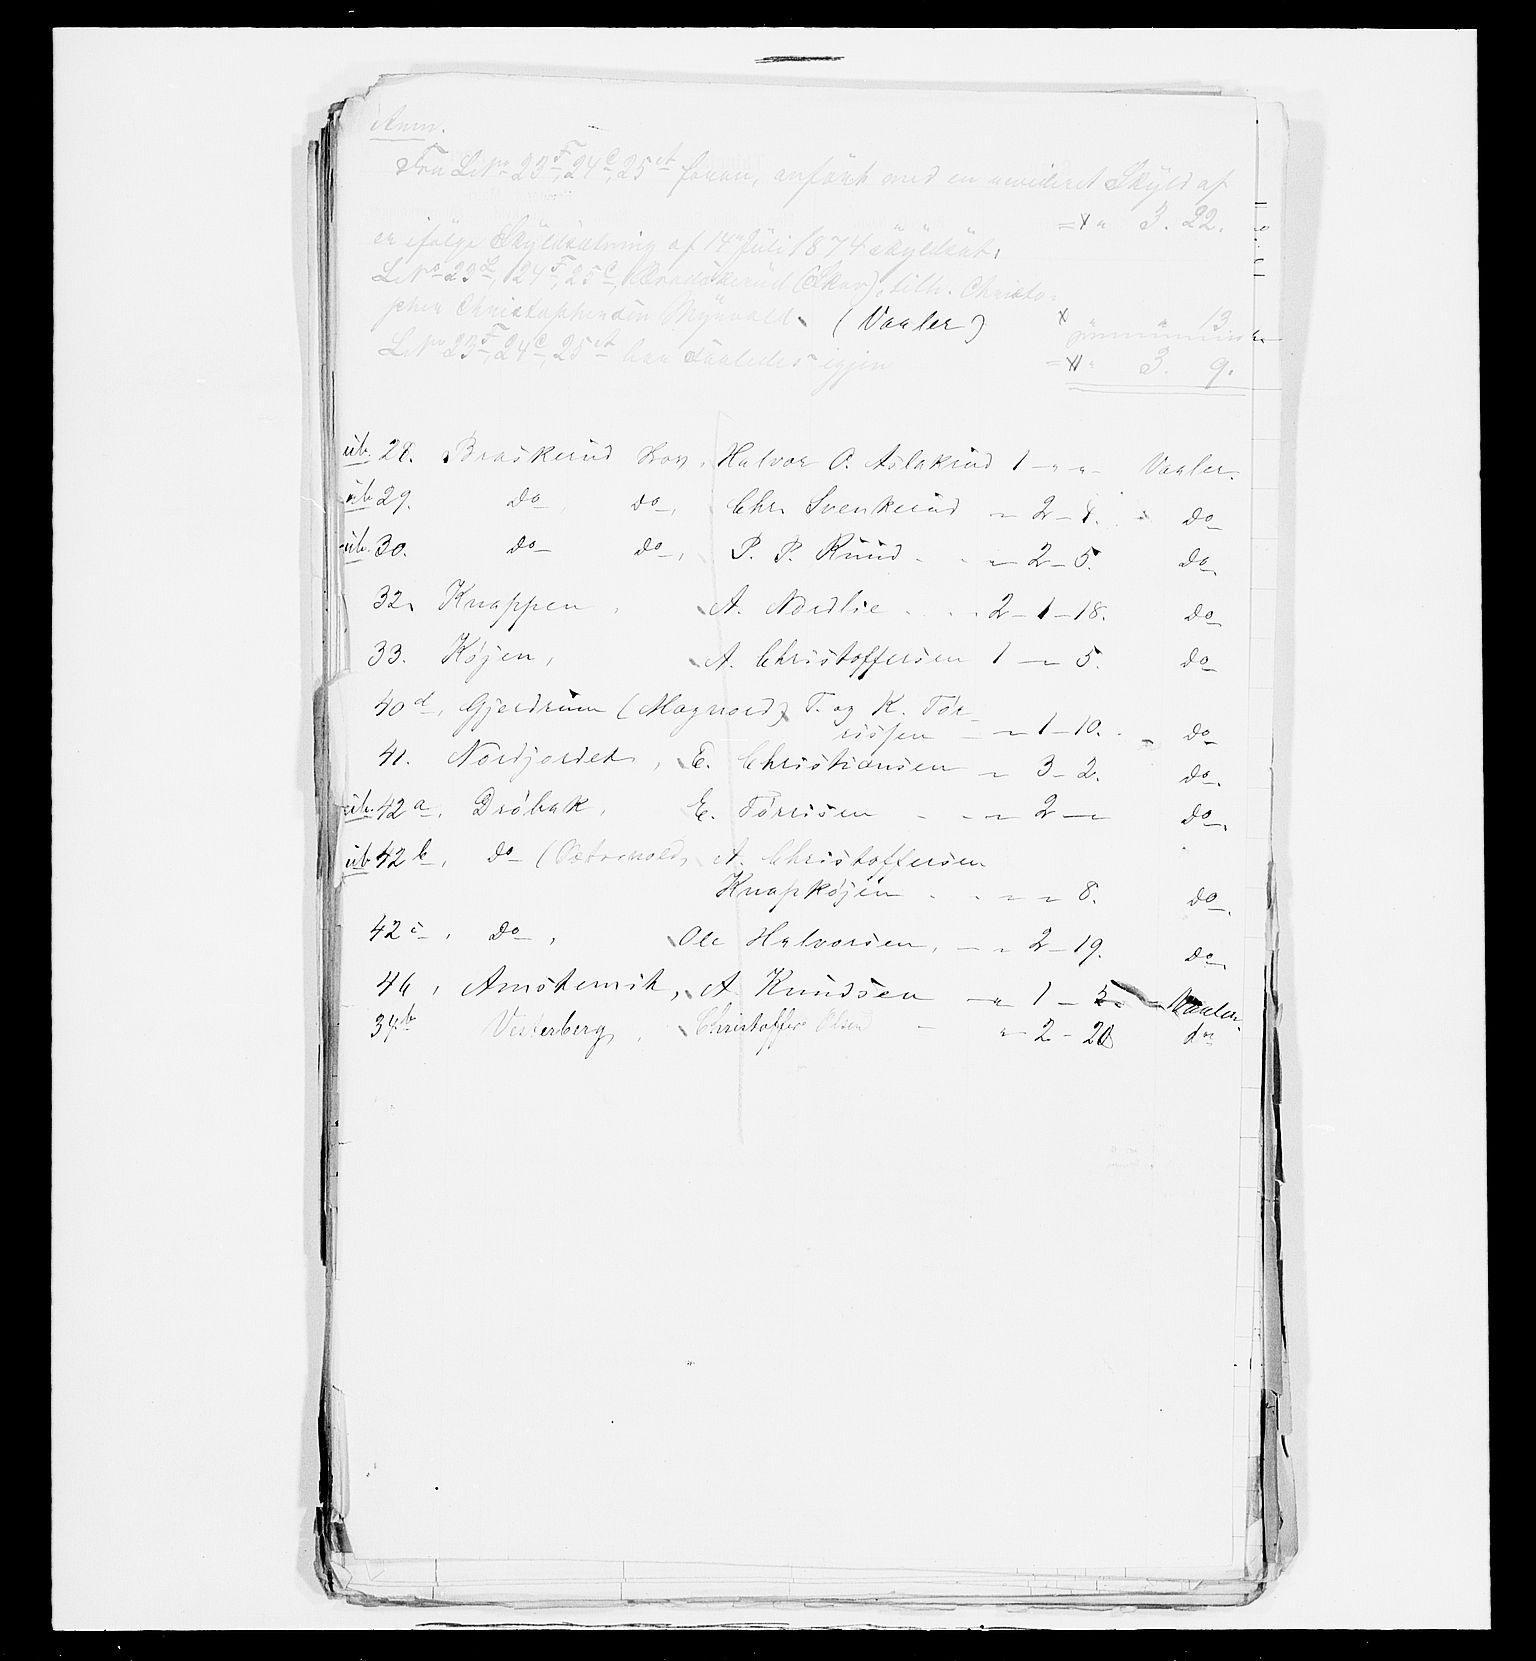 Anm.
Fra L. No 23 F, 24 C, 25 A foran, anført med en revideret Skyld af
" 3. 22.
er ifølge Skyldsætning af 14 Juli 1874 skyldsat:
L. No 23 L, 24 F, 25 C, Braaskerud (Skov), tilh. Christo-
pher Christophersen Myrvold (Vaaler) " " 13
L. No 23 F, 24 C, 25 A har saaledes igjen " 3. 9.
ub. 28. Braskerud Skov, Halvor O. Aslakrud 1 - " " - Vaaler.
ub 29. do do, Chr. Svenkerud " 2 - 8. do
ub. 30. do do, P. P. Ruud " 2 - 5. do
32. Knappen, A. Nordlie 2 - 1 - 18. do
33. Køjen, A. Christoffersen 1 - " 5. do
40 d, Gjerdrum (Magnord) T. og K. Tør-
rissen " 1 - 10. do
41. Nordjordet, E. Christiansen " 3 - 2. do
ub. 42 a, Drøbak, E. Tørrisen " 2 - " do
ub 42 b, do ( A. Christoffersen
Knapkøjen " " 8. do
42 c, do, Ole Halvorsen, " 2 - 19. do
46, A. Knudsen " 1 - 5 Vaaler.
34 b Vesterberg, Christoffer Olsen " 2 - 20 do